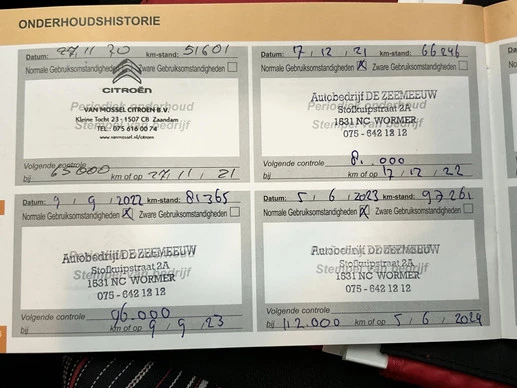 ONDERHOUDSHISTORIE
Datum: 27, 11, 20 km-stand: 51601
Normale Gebruiksomstandigheden Zware Gebruiksomstandigheden
CITROËN
Periodiek onderhoud
VAN MOSSEL CITROËN B.V.
Kleine Tocht 23 - 1507 CB Zaandam
Stempel van bedrijf
TEL.: 075 616 00 74
www.vanmossel.nl/citroen
Volgende controle
bij 65000 km of op 27, 11, 21
Datum: 7, 12, 21 km-stand: 66246
Normale Gebruiksomstandigheden X Zware Gebruiksomstandigheden
Autobedrijf DE ZEEMEEUW
Periodiek onderhoud
Stofkuipstraat 2A
Stempel van bedrijf
1531 NC WORMER
075 - 642 12 12
Volgende controle
bij 8 .000 km of op 7, 12, 22
Datum: 9, 9, 2022 km-stand: 81365
Normale Gebruiksomstandigheden X Zware Gebruiksomstandigheden
Autobedrijf DE ZEEMEEUW
Stofkuipstraat 2A
Stempel van bedrijf
1531 NC WORMER
075 - 642 12 12
Volgende controle
bij 96.000 km of op 9, 9, 23
Datum: 5, 6, 2023 km-stand: 97261
Normale Gebruiksomstandigheden X Zware Gebruiksomstandigheden
Autobedrijf DE ZEEMEEUW
Stofkuipstraat 2A
Stempel van bedrijf
1531 NC WORMER
075 - 642 12 12
Volgende controle
bij 112.000 km of op 5, 6, 2024